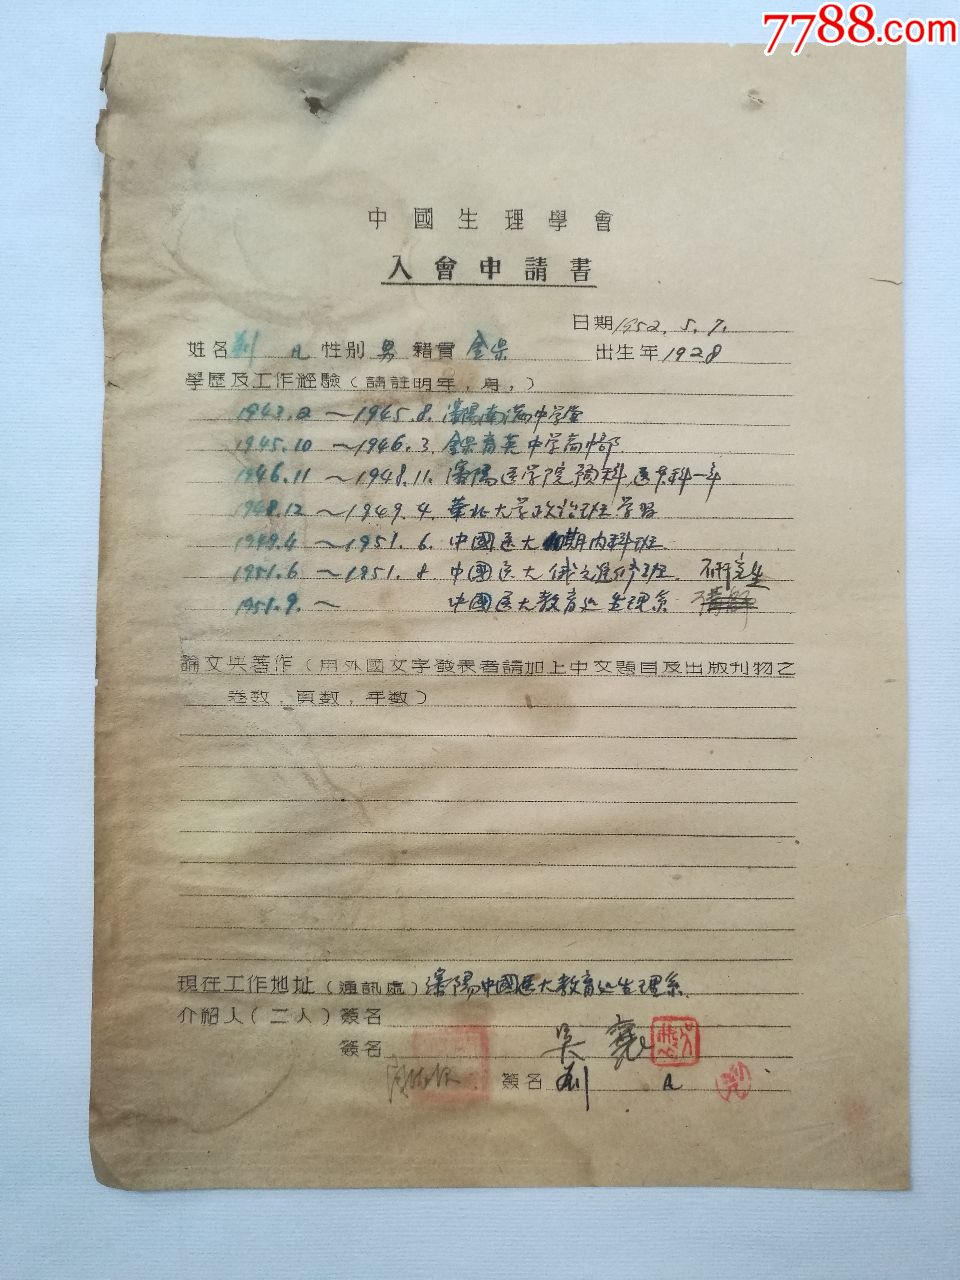 7788.com
中國生理學會
入會申請書
日期 1952.5.7.
姓名 刘 凡 性別 男 籍貫 金県 出生年 1928
學歷及工作經驗（請註明年，月，）
1943.2 ～ 1945.8. 瀋陽南満中学堂
1945.10 ～ 1946.3. 金県育英中学高中部
1946.11 ～ 1948.11. 瀋陽医学院預科,医本科一年
1948.12 ～ 1949.4. 華北大学政治班学習
1949.4 ～ 1951.6. 中國医大 期内科班.
1951.6 ～ 1951.8 中國医大俄文進修班. 研究生
1951.9. ～ 中國医大教育処生理系
論文與著作（用外國文字發表者請加上中文題目及出版刊物之
卷數，頁數，年數）
現在工作地址（通訊處）瀋陽中國医大教育処生理系.
介紹人（二人）簽名
吴襄
簽名
簽名 刘 凡